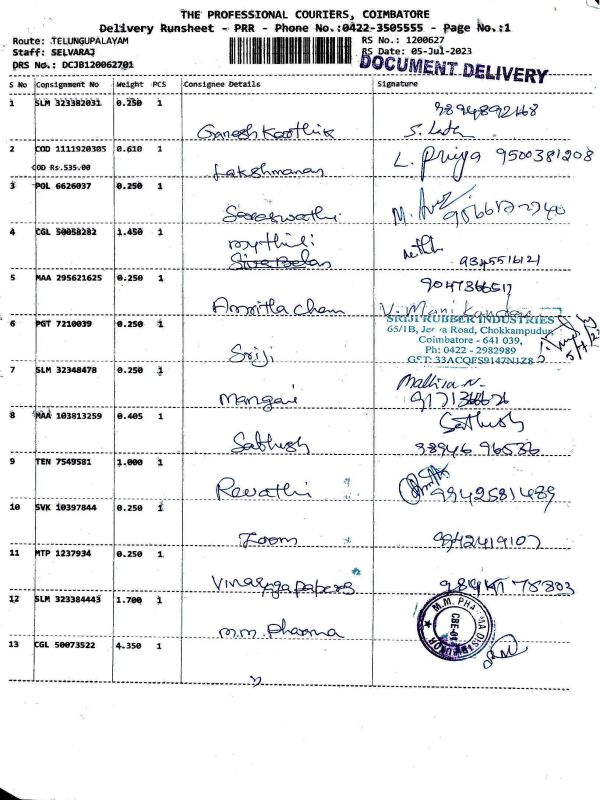 THE PROFESSIONAL COURIERS, COIMBATORE
Delivery Runsheet - PRR - Phone No.:0422-3505555 - Page No.:1
Route: TELUNGUPALAYAM RS No.: 1200627
Staff: SELVARAJ RS Date: 05-Jul-2023
DRS No.: DCJB120062701 DOCUMENT DELIVERY
S No Consignment No Weight PCS Consignee Details Signature
1 SLM 323382031 0.250 1
Ganesh Karthik
2 COD 1111920305 0.610 1 L. Priya 9500381208
COD Rs.535.00 Lakshmanan
3 POL 6626037 0.250 1
Saraswathi
4 CGL 50058282 1.450 1 mythili
Siva Balan 9345516121
5 MAA 295621625 0.250 1 9047366517
Amritha Cham V. Manikandan
6 PGT 7210039 0.250 1 SRIJI RUBBER INDUSTRIES
65/1B, Road, Chokkampudur,
Coimbatore - 641 039,
Ph: 0422 - 2982989
Sriji GST: 33ACQFS9147N1Z8
7 SLM 32348478 0.250 1 Mallika N.
Mangai
8 MAA 103813259 0.405 1 Sathish
Sathish 98946 96536
9 TEN 7549581 1.000 1
Revathi 9942581489
10 SVK 10397844 0.250 1
Zoom 9842419107
11 MTP 1237934 0.250 1
Vinayaga papers
12 SLM 323384443 1.700 1 M.M. PHARMA DISTRIBUTOR
CBE-01
M.M. Pharma
13 CGL 50073522 4.350 1